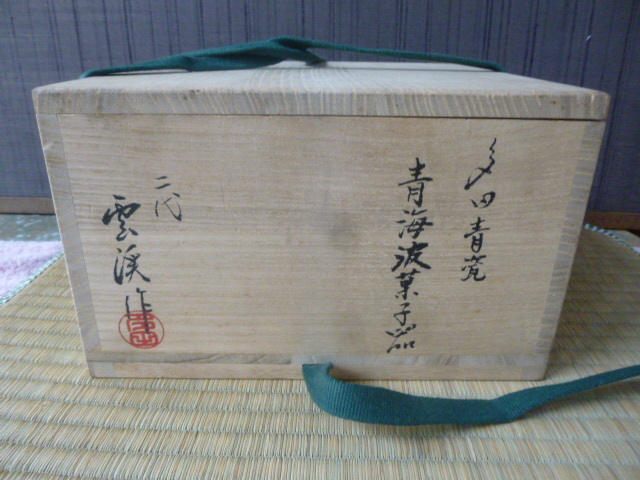 多田青瓷
青海波菓子器
二代
雲渓作